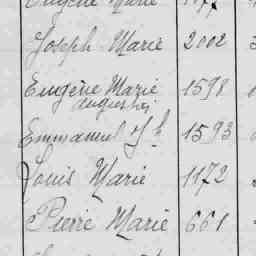 Eugène Marie 1177
Joseph Marie 2002
Eugène Marie 1598
augustin
Emmanuel Jh 1593
Louis Marie 1172
Pierre Marie 661